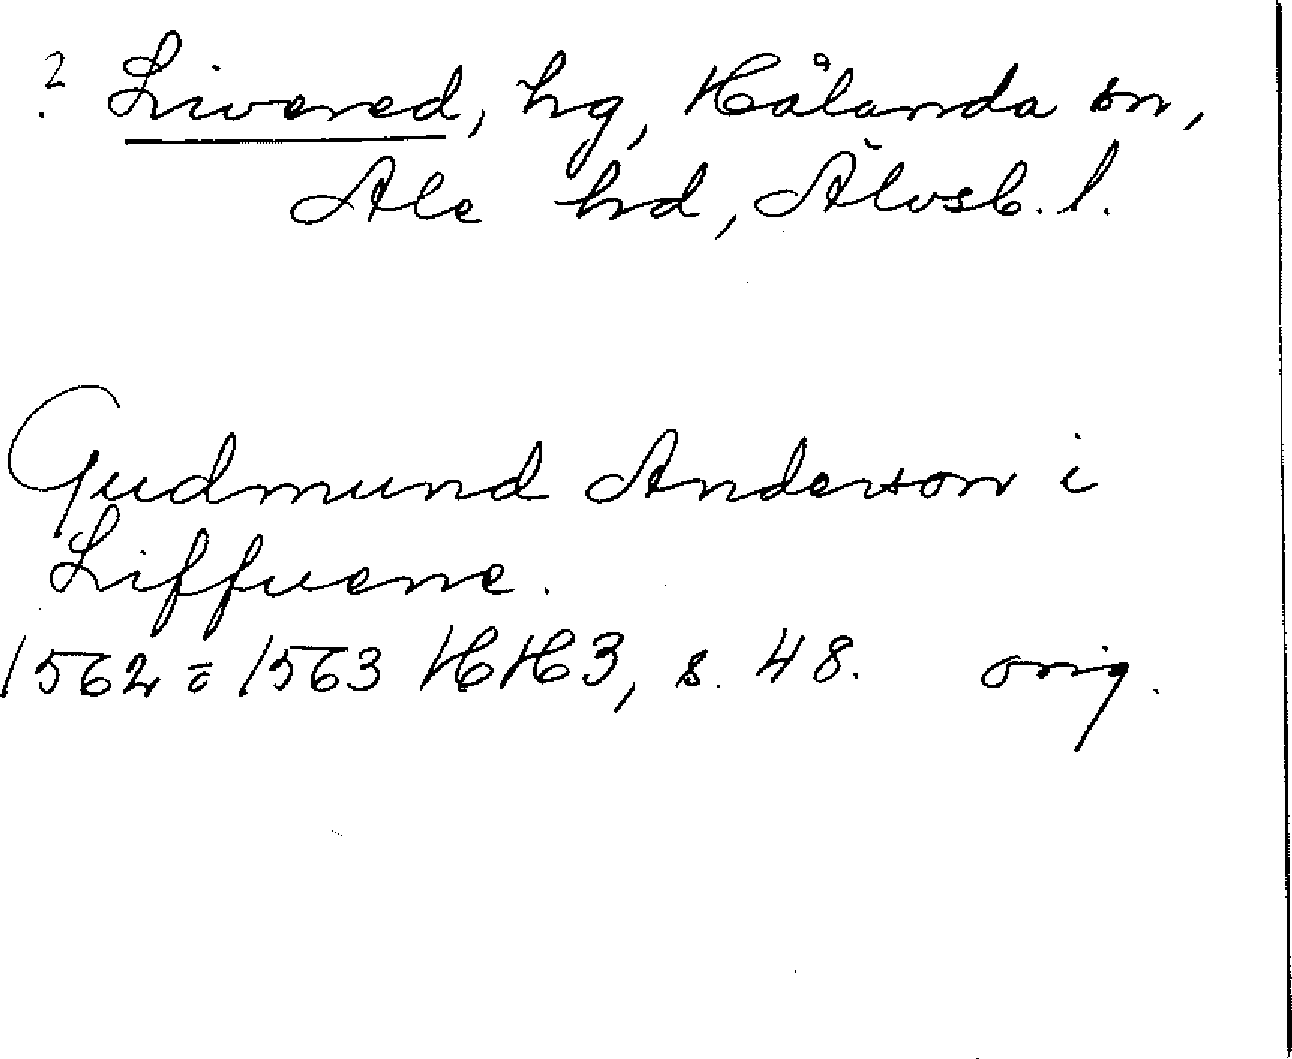 ? Livered, hg, Hålanda sn,
Ale hd, Älvsb. l.
Gudmund Anderson i
Liffuene.
1562 = 1563 HH3, s. 48. orig.